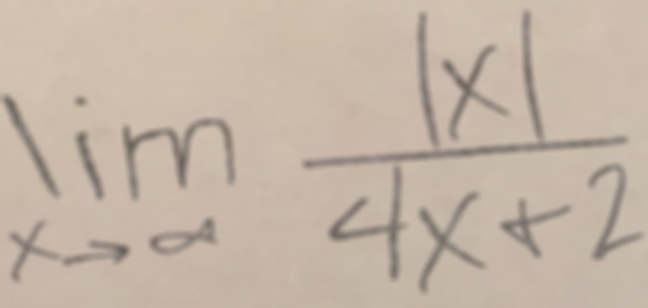 lim x→∞ |x| / 4x+2